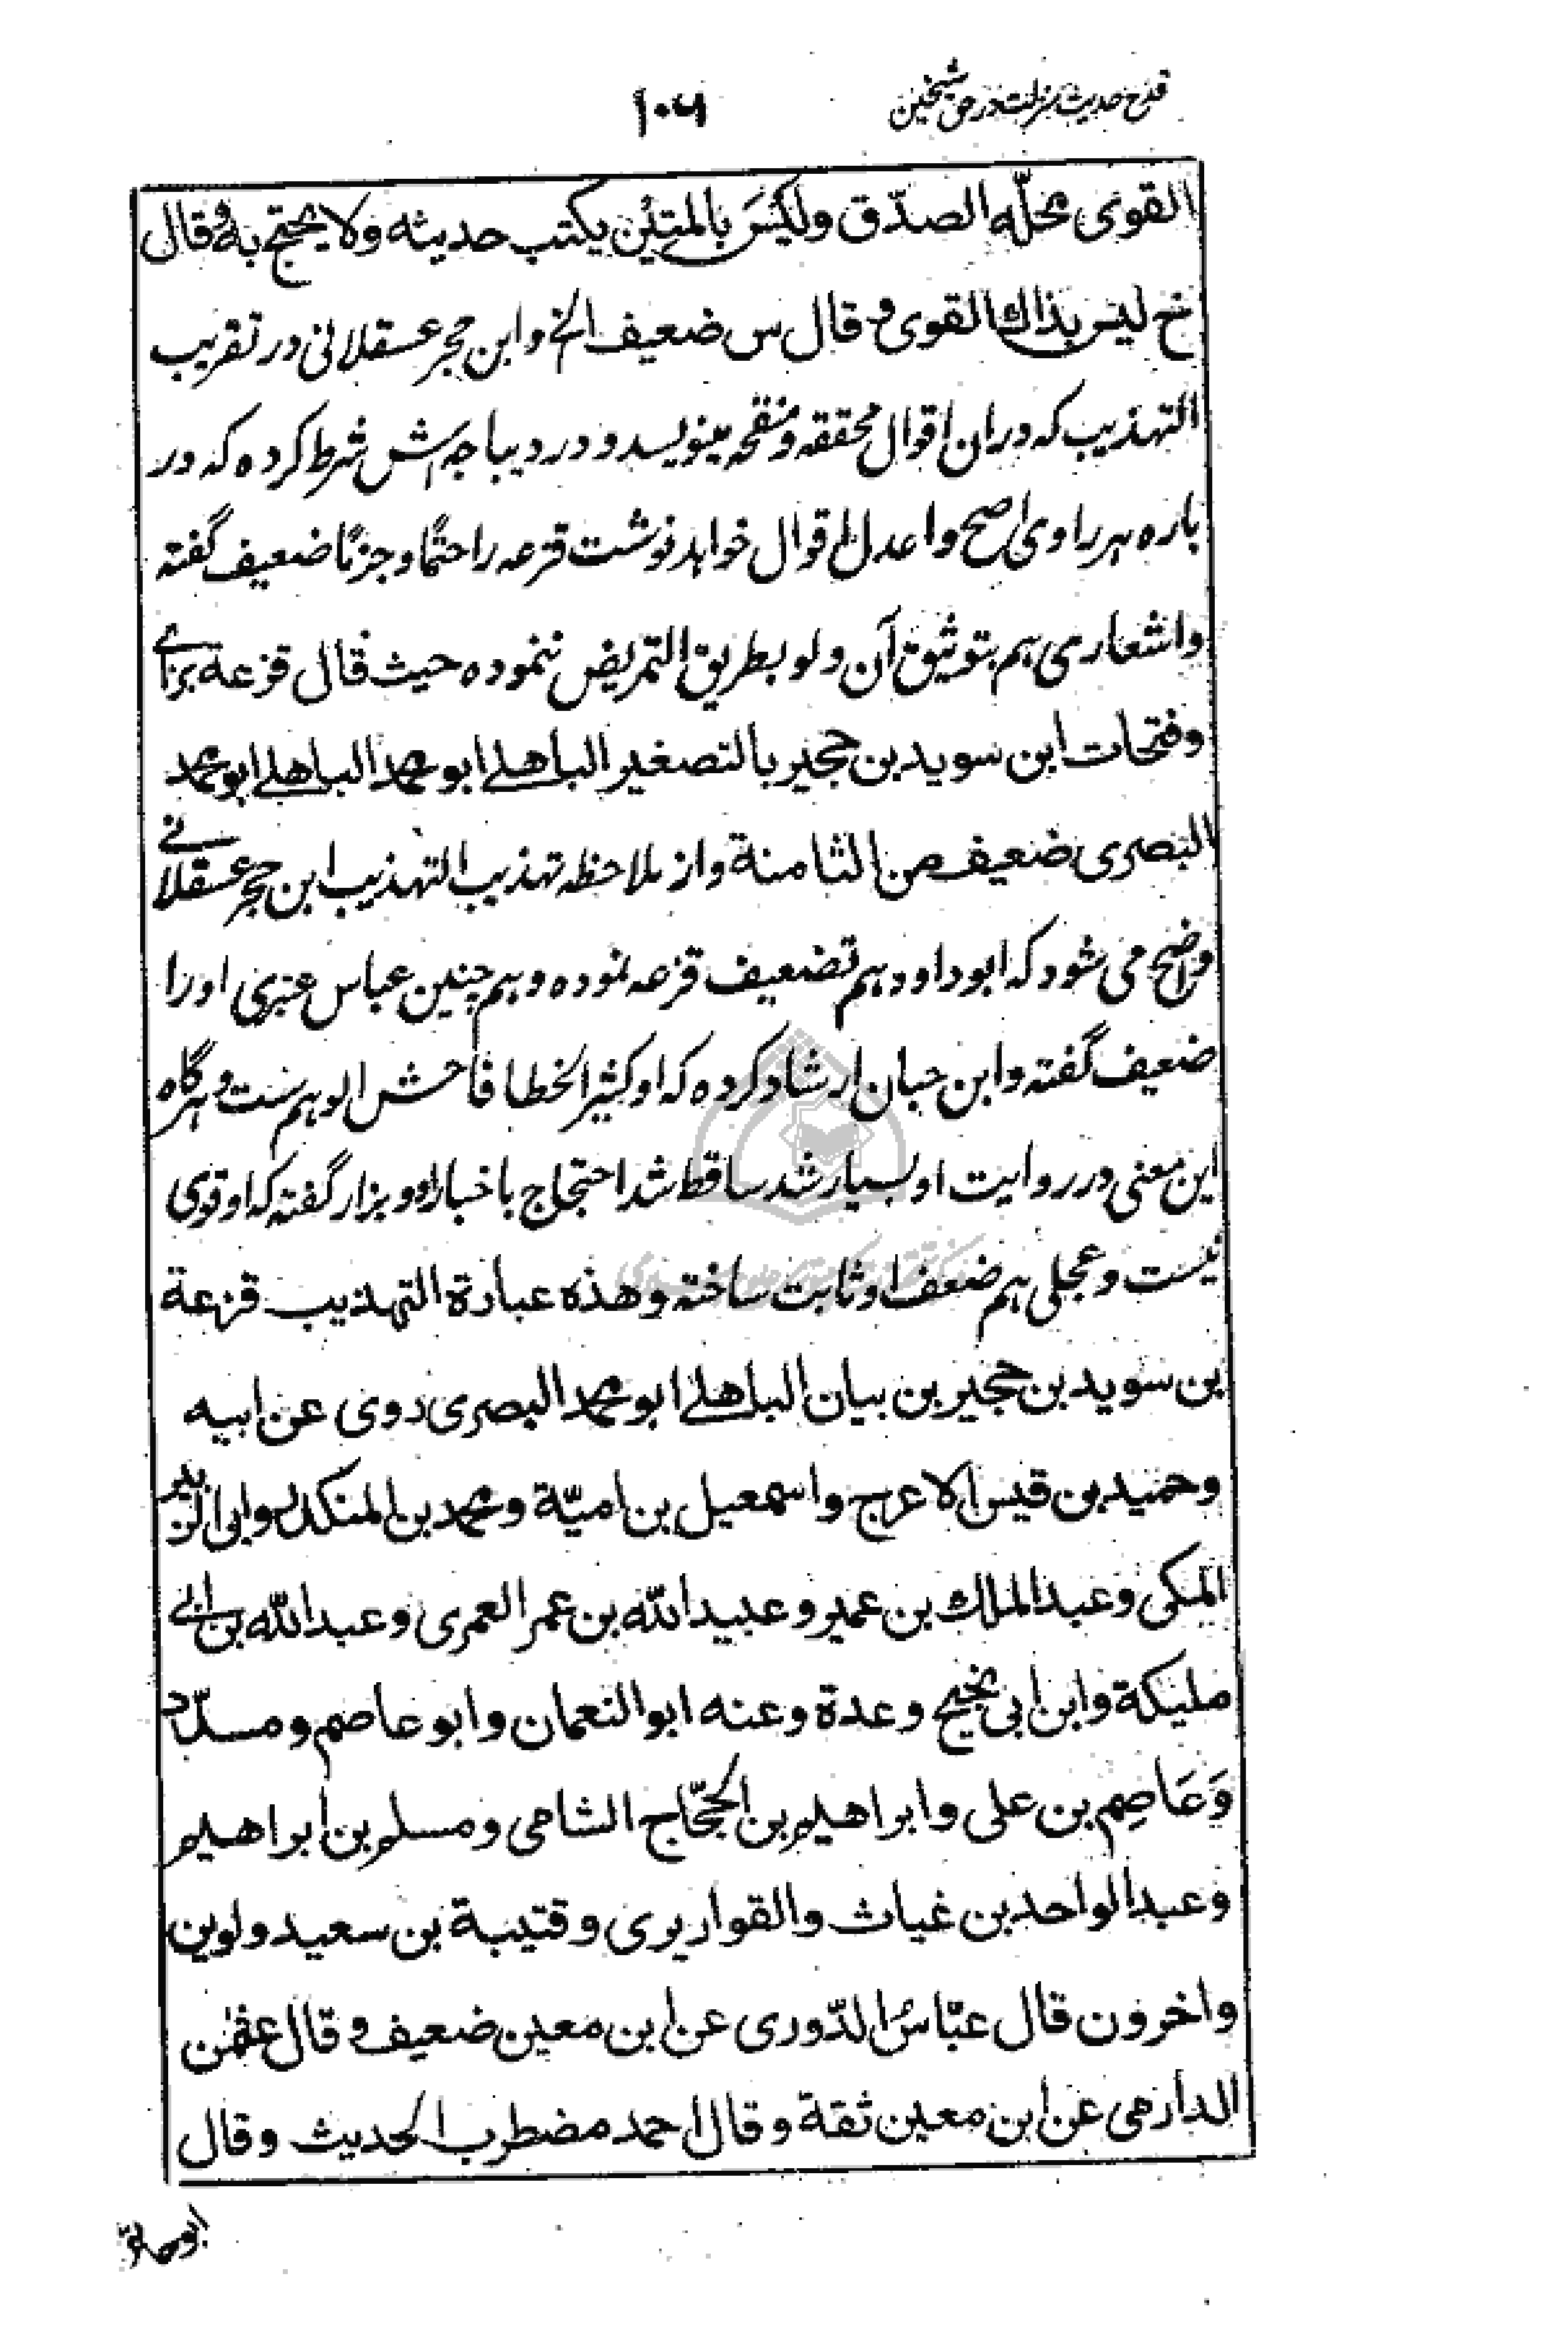 قدح حدیث منزلت در حق شیخین
۱۰۶
القوی محلّه الصدّق ولَیْسَ بالمتین یکتب حدیثه ولا یحتج بهٔ قال
خ لیس بذاك القوی وقال س ضعیف الخ وابن حجر عسقلانی در تقریب
التهذیب که دران اقوال محققه ومنقحه مینویسد و در دیباجه اش شرط کرده که در
باره هر راوی اصح واعدل اقوال خواهد نوشت قزعه را حتمًا وجزمًا ضعیف گفته
واشعاری هم بتوثیق آن ولو بطریق التمریض ننموده حیث قال قزعة بزاے
وفتحات ابن سوید بن حجیر بالتصغیر الباهلے ابو محمد الباهلے ابو محمد
البصری ضعیف من الثامنة واز ملاحظه تهذیب التهذیب ابن حجر عسقلانے
واضح می شود که ابو داود هم تضعیف قزعه نموده وهم چنین عباس عنبری اورا
ضعیف گفته وابن حبان ارشاد کرده که او کثیر الخطا فاحش الوهم ست وهرگاه
این معنی در روایت او بسیار شد ساقط شد احتجاج باخبار او وبزار گفته که او قوی
نیست وعجلی هم ضعف او ثابت ساخته وهذه عبارة التهذیب قزعة
بن سوید بن حجیر بن بیان الباهلے ابو محمد البصری روی عن ابیه
وحمید بن قیس الاعرج واسمعیل بن امیّة ومحمد بن المنکدر وابی الزبیر
المکی وعبد الملك بن عمیر وعبید الله بن عمر العمری وعبد الله بن ابی
ملیکة وابن ابی نجیح وعدة وعنه ابو النعمان وابو عاصم ومسدّد
وَعَاصِم بن علی وابراهیم بن الحجّاج الشامی ومسلم بن ابراهیم
وعبد الواحد بن غیاث والقواریری وقتیبة بن سعید ولوین
واخرون قال عبّاسُ الدّوری عن ابن معین ضعیف وقال عثمٰن
الدارمی عن ابن معین ثقة وقال احمد مضطرب الحدیث وقال
ابو حاتم